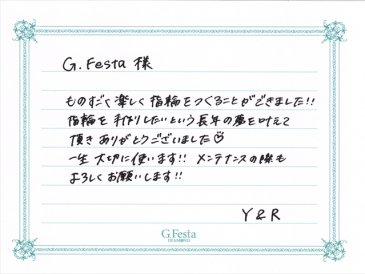 G.Festa 様
ものすごく楽しく指輪をつくることができました!!
指輪を手作りしたいという長年の夢を叶えて
頂きありがとうございました♡
一生大切に使います!! メンテナンスの際も
よろしくお願いします!!
Y & R
G.Festa
DIAMOND